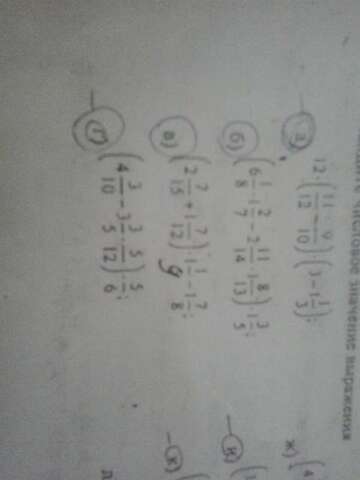 числовое значение выражения
а) 12 · (11/12 − 9/10) · (3 − 1 1/3);
б) (6 1/8 · 1 2/7 − 2 11/14 · 1 8/13) · 1 3/5;
в) (2 7/15 + 1 7/12) · 1 1/9 − 1 7/8;
г) (4 3/10 − 3 3/5 · 5/12) · 5/6;
ж) (4